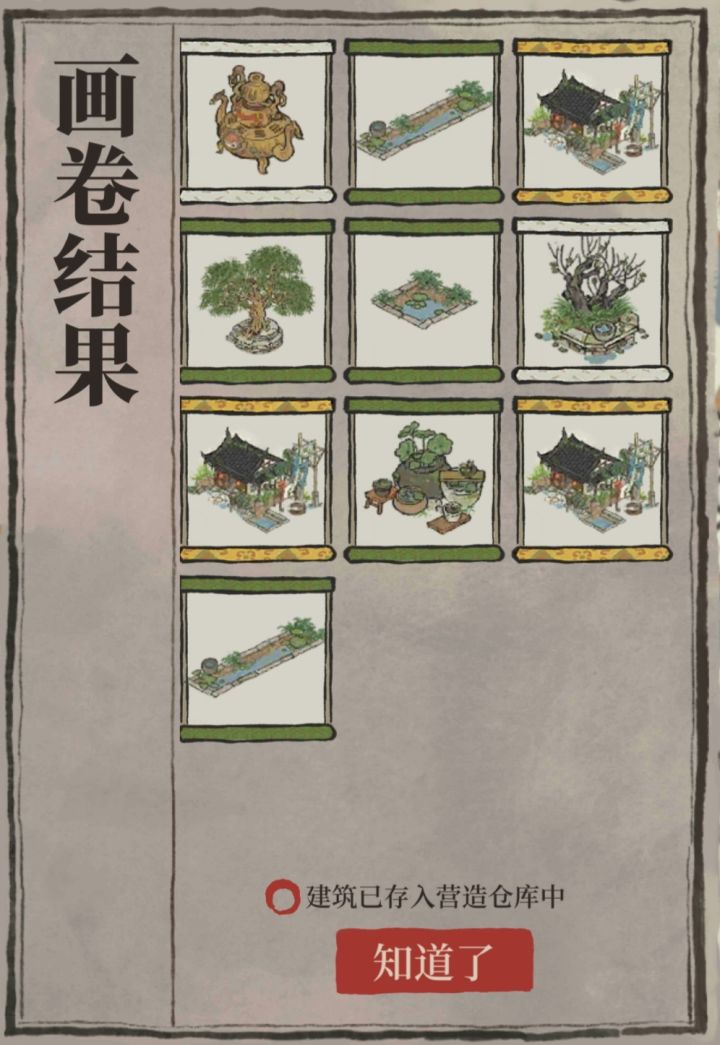 画卷结果
建筑已存入营造仓库中
知道了